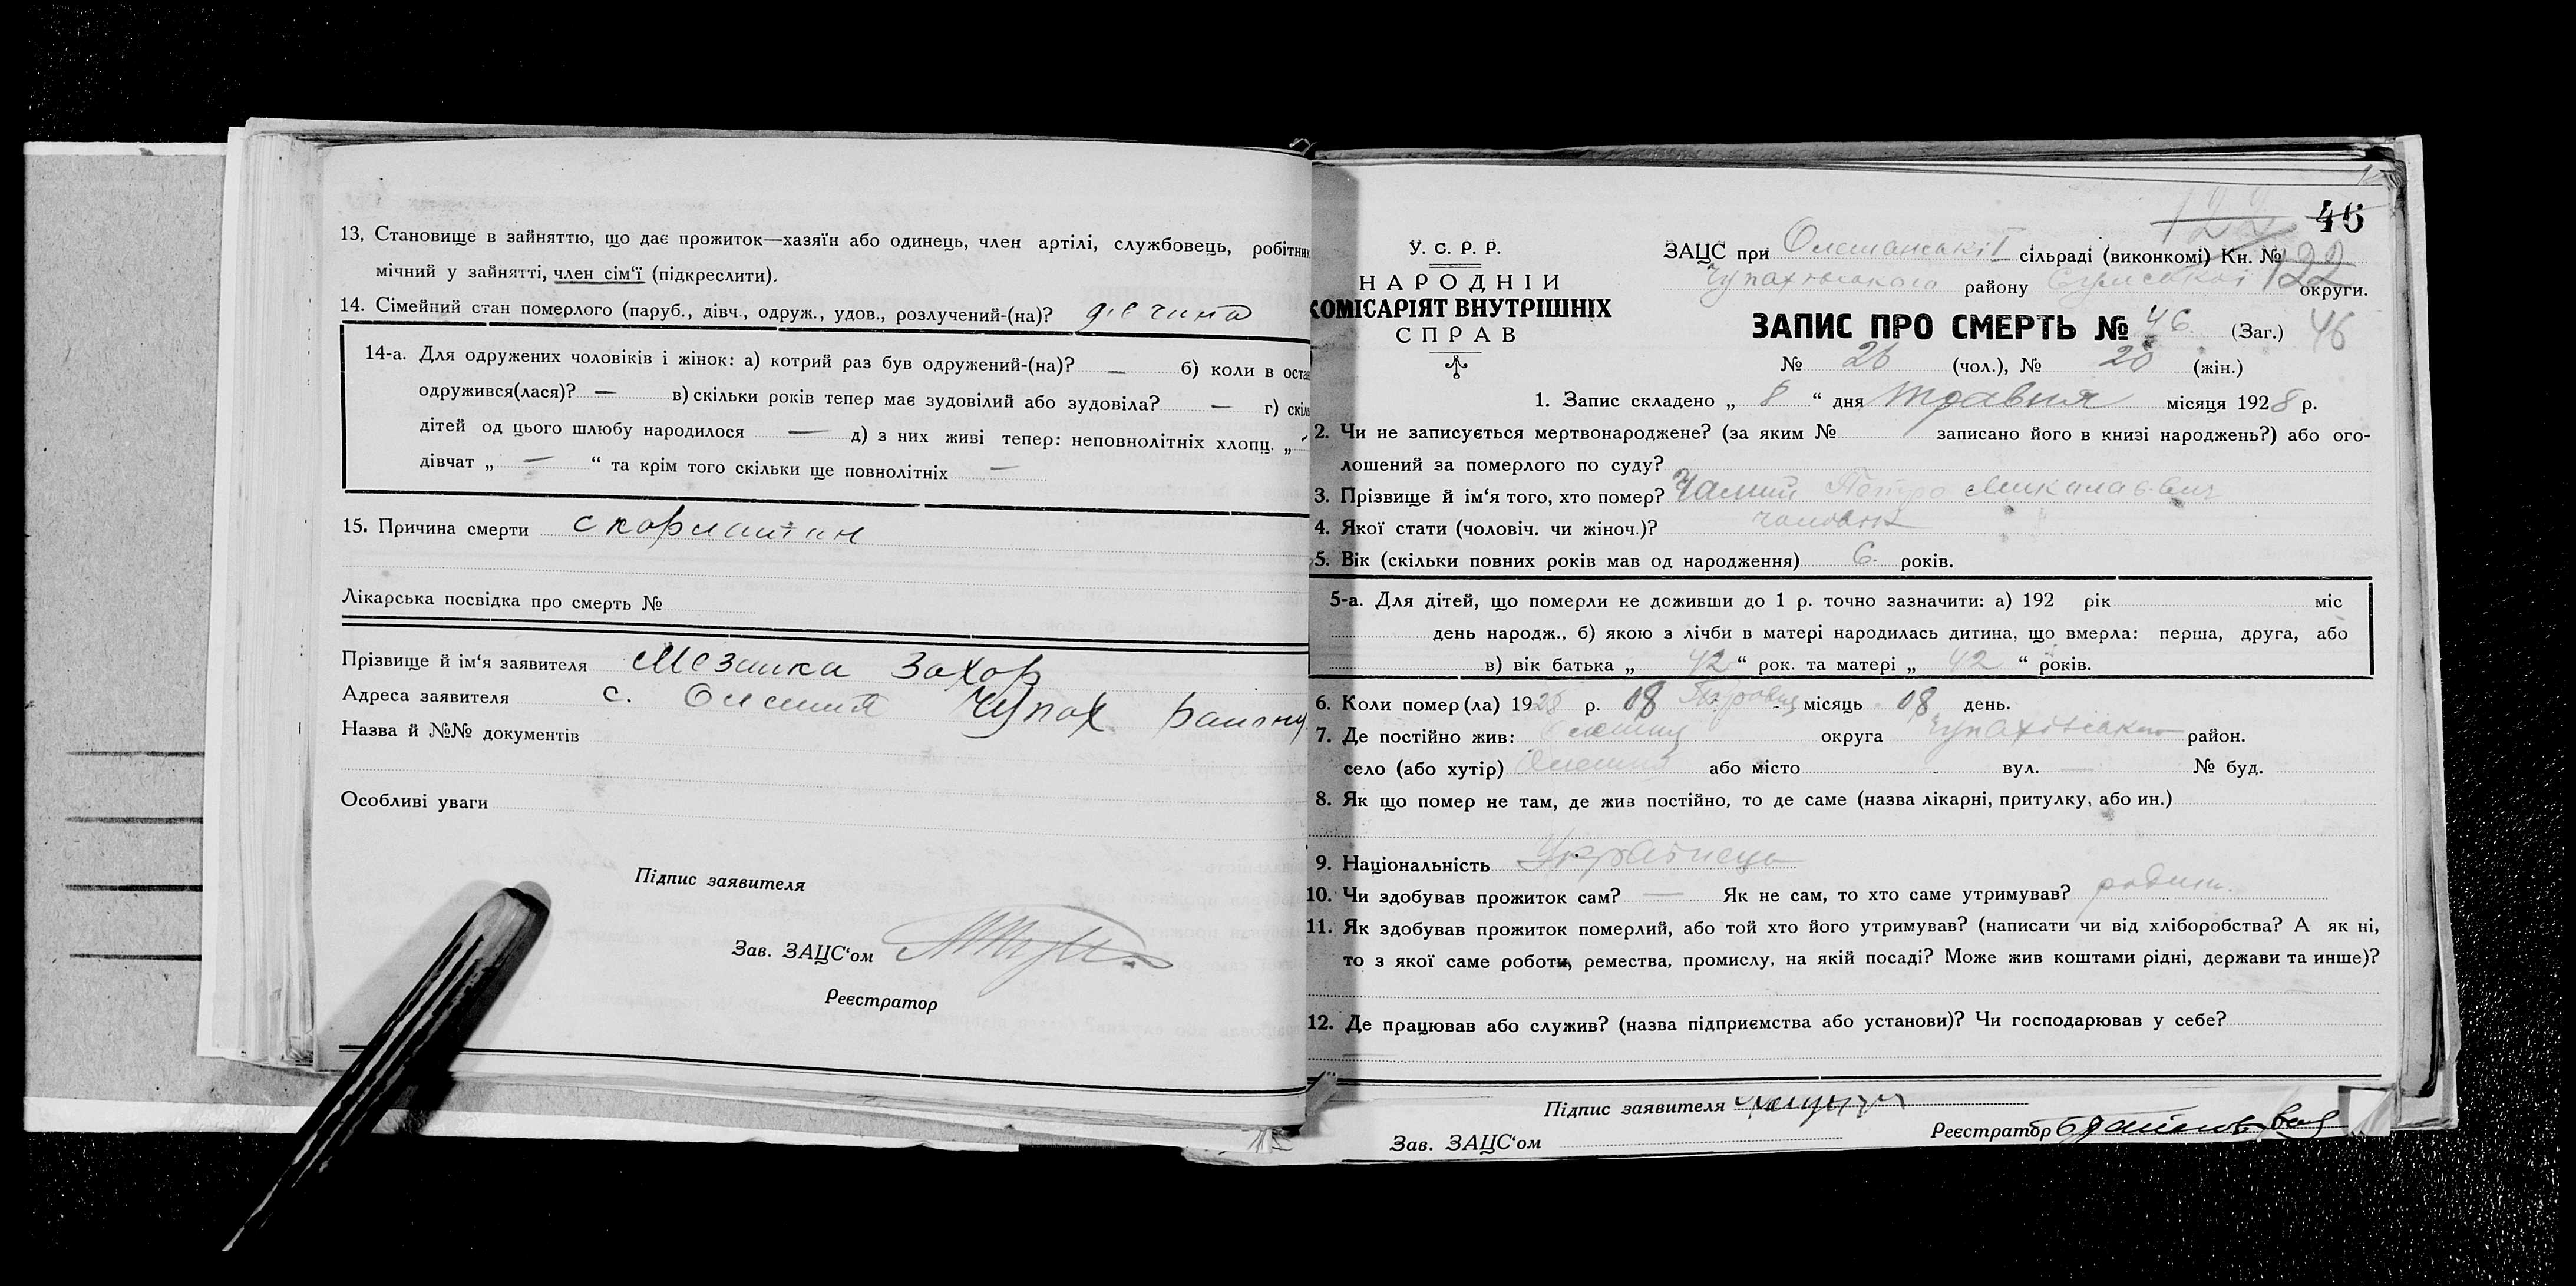 13, Становище в зайняттю, що дає прожиток—хазяїн або одинець, член артілі, службовець, робітник
мічний у зайнятті, член сім‘ї (підкреслити).
14. Сімейний стан померлого (паруб., дівч., одруж., удов., розлучений-(на)? дівчина
14-а. Для одружених чоловіків і жінок: а) котрий раз був одружений-(на)? — б) коли в оста
одружився(лася)? — в) скільки років тепер має зудовілий або зудовіла? — г) скіль
дітей од цього шлюбу народилося — д) з них живі тепер: неповнолітніх хлопц. „
дівчат „ — “ та крім того скільки ще повнолітніх —
15. Причина смерти скорлатин
Лікарська посвідка про смерть №
Прізвище й ім‘я заявителя Захор
Адреса заявителя с. Олешня Чупах району
Назва й №№ документів
Особливі уваги
Підпис заявителя
Зав. ЗАЦС‘ом
Реєстратор
46
У. С. Р. Р.
НАРОДНІЙ
КОМІСАРІЯТ ВНУТРІШНІХ
СПРАВ
ЗАЦС при Олешанській сільраді (виконкомі) Кн. № 122
Чупахівського району Сумської округи.
ЗАПИС ПРО СМЕРТЬ № 46 (Заг.) 46
№ 26 (чол.), № 20 (жін.)
1. Запис складено „ 8 “ дня травня місяця 1928 р.
2. Чи не записується мертвонароджене? (за яким № записано його в книзі народжень?) або ого-
лошений за померлого по суду?
3. Прізвище й ім‘я того, хто помер? Чалий Петро
4. Якої стати (чоловіч. чи жіноч.)?
5. Вік (скільки повних років мав од народження) 6 років.
5-а. Для дітей, що померли не доживши до 1 р. точно зазначити: а) 192 рік міс
день народж., б) якою з лічби в матері народилась дитина, що вмерла: перша, друга, або
в) вік батька „ 42 “ рок. та матері „ 42 “ років.
6. Коли помер(ла) 1928 р. 08 місяць 08 день.
7. Де постійно жив: округа Чупахівського район.
село (або хутір) Олешня або місто вул. — № буд.
8. Як що помер не там, де жив постійно, то де саме (назва лікарні, притулку, або ин.)
9. Національність Українець
10. Чи здобував прожиток сам? — Як не сам, то хто саме утримував? родит.
11. Як здобував прожиток померлий, або той хто його утримував? (написати чи від хліборобства? А як ні,
то з якої саме роботи, ремества, промислу, на якій посаді? Може жив коштами рідні, держави та инше)?
12. Де працював або служив? (назва підприємства або установи)? Чи господарював у себе?
Підпис заявителя
Зав. ЗАЦС‘ом
Реєстратор